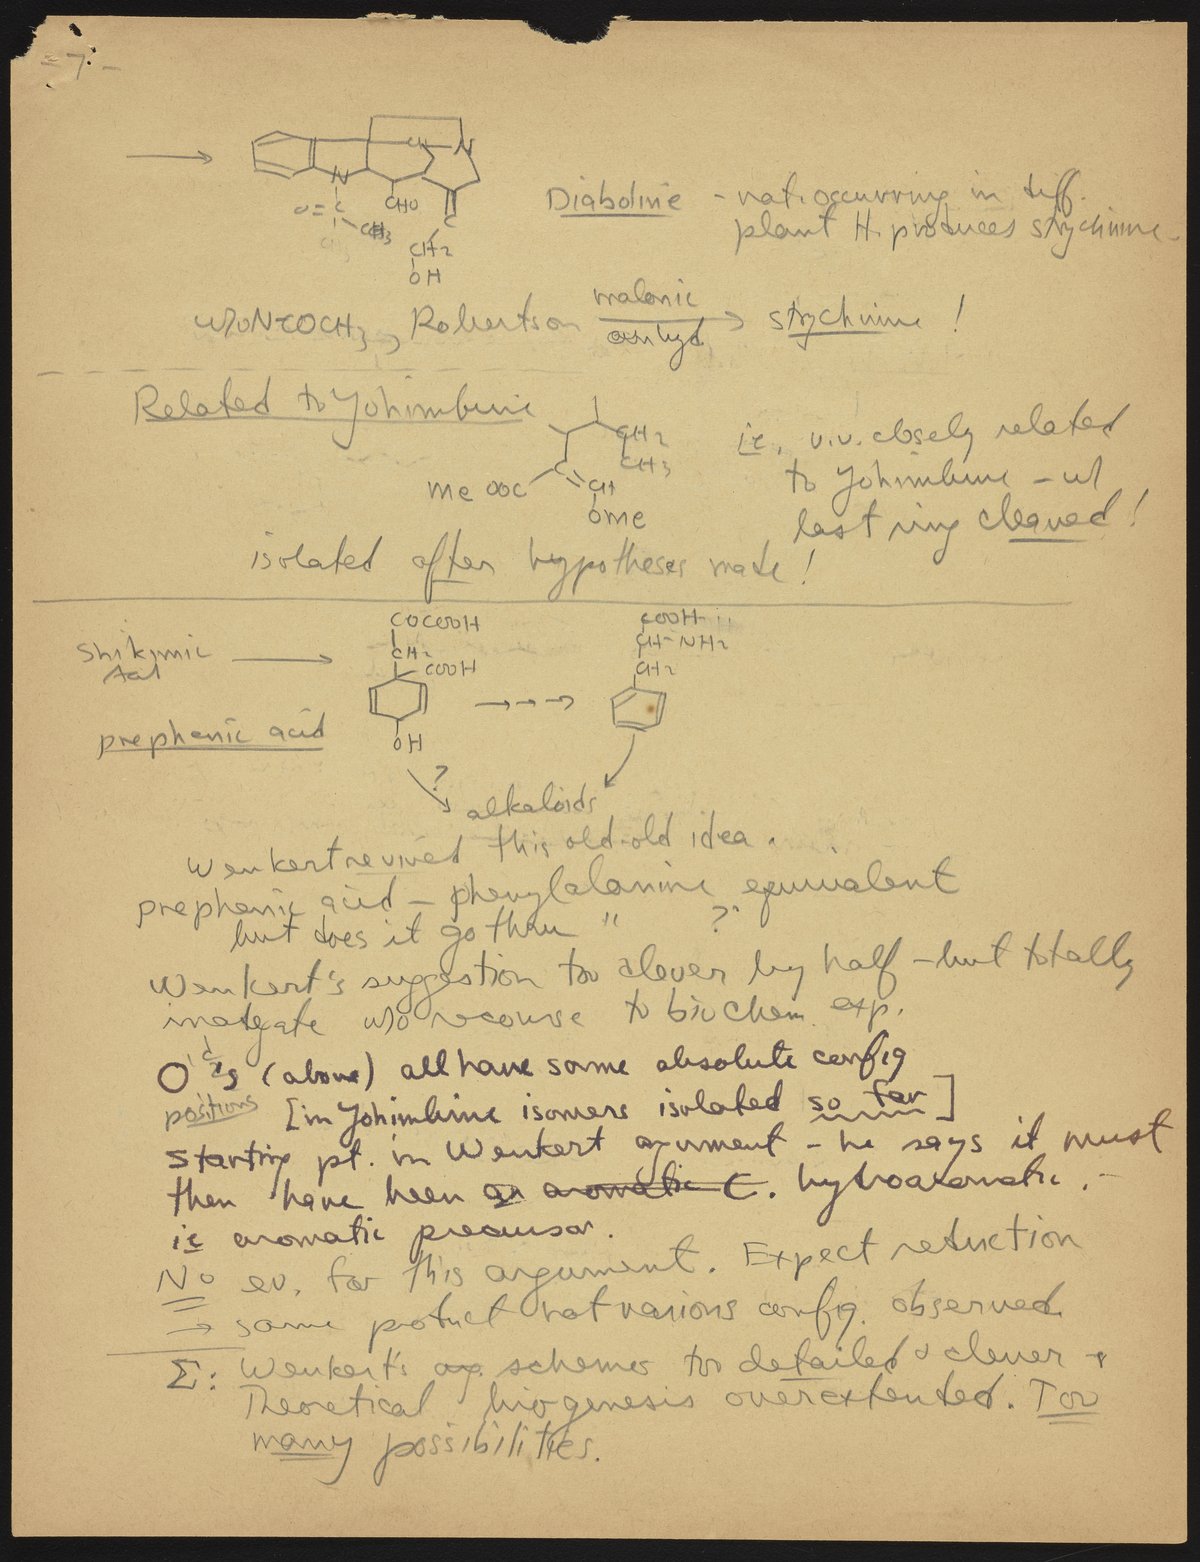 - 7 -
Diaboline - nat. occurring in diff.
plant tt. produces strychnine -
CH N
N CHO C
O=C
CH3
CH2
OH
w/o NCOCH3, Robertson malonic anhyd. → strychnine!
Related to Yohimbine
CH2
CH3
MeOOC C CH
OMe
ie, v.v. closely related
to Yohimbine - w/
last ring cleaved!
isolated after hypotheses made!
Shikimic
Acid
COCOOH
CH2
COOH
OH
COOH
CH-NH2
CH2
prephenic acid
?
alkaloids
Wenkert revived this old-old idea.
prephenic acid - phenylalanine equivalent
but does it go thru " ?
Wenkert's suggestion too clever by half - but totally
inadequate w/o recourse to biochem exp.
O'd C's (above) all have same absolute config
positions [in Yohimbine isomers isolated so far]
Starting pt. in Wenkert argument - he says it must
then have been an aromatic C. hydroaromatic. -
ie aromatic precursor.
No ev. for this argument. Expect reduction
→ same product not various config. observed
Σ: Wenkert's schemes too detailed & clever &
Theoretical biogenesis overextended. Too
many possibilities.